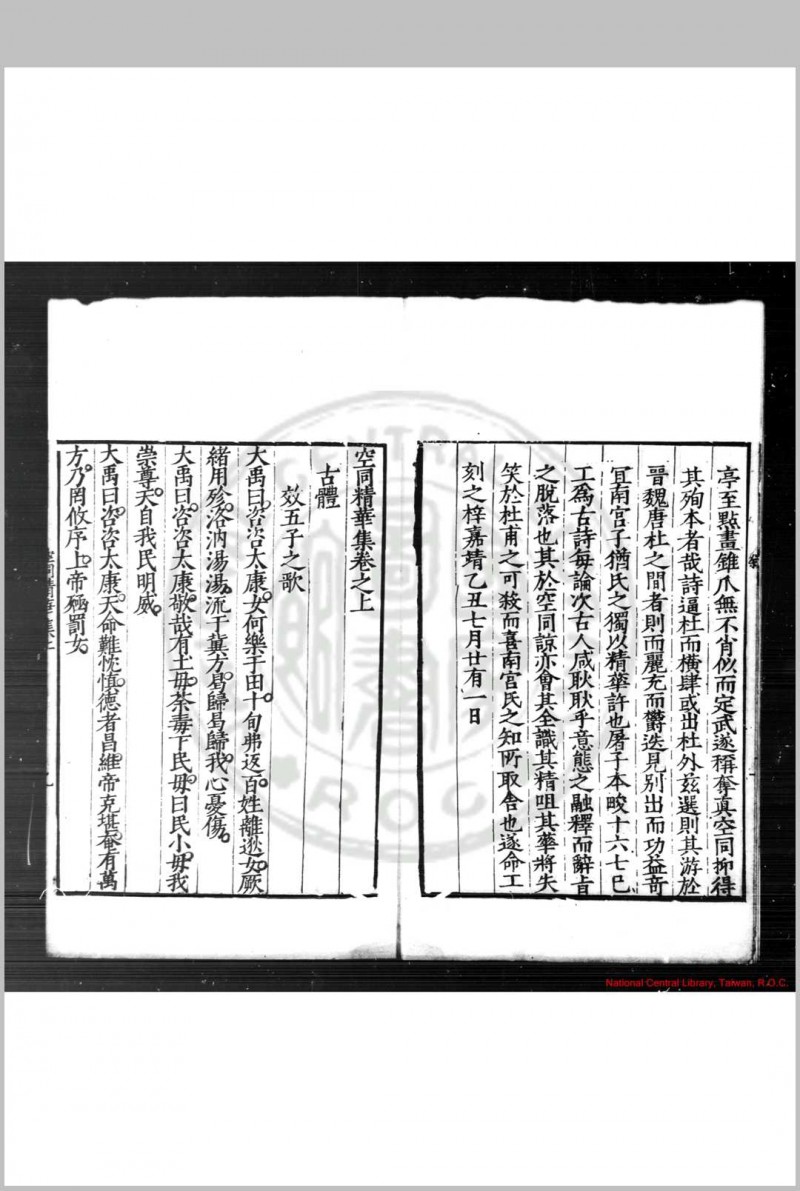 亭至㸃畫錐爪無不肖似而定武遂稱奪真空同抑得
其殉本者哉詩逼杜而橫肆或出杜外兹選則其游於
晉魏唐杜之間者則而麗充而欝迭見别出而功益竒
冝南宫子猶氏之獨以精華許也屠子本畯十六七已
工為古詩每論次古人咸耿耿乎意態之融釋而辭㫖
之脫落也其於空同諒亦會其全識其精咀其華將失
笑於杜甫之可殺而喜南宫氏之知所取舍也遂命工
刻之梓嘉靖乙丑七月廿有一日
空同精華集卷之上
古體
效五子之歌
大禹曰咨咨太康女何樂于田十旬弗返百姓離逖女厥
緒用殄洛汭湯湯流于冀方曷歸曷歸我心憂傷
大禹曰咨咨太康敬哉有土毋荼毒下民毋曰民小毋我
崇尊天自我民明威
大禹曰咨咨太康天命難忱慎德者昌維帝克堪奄有萬
方乃罔攸序上帝殛罰女
空同精華集上
National Central Library, Taiwan, R.O.C.
CENTRAL
R.O.C